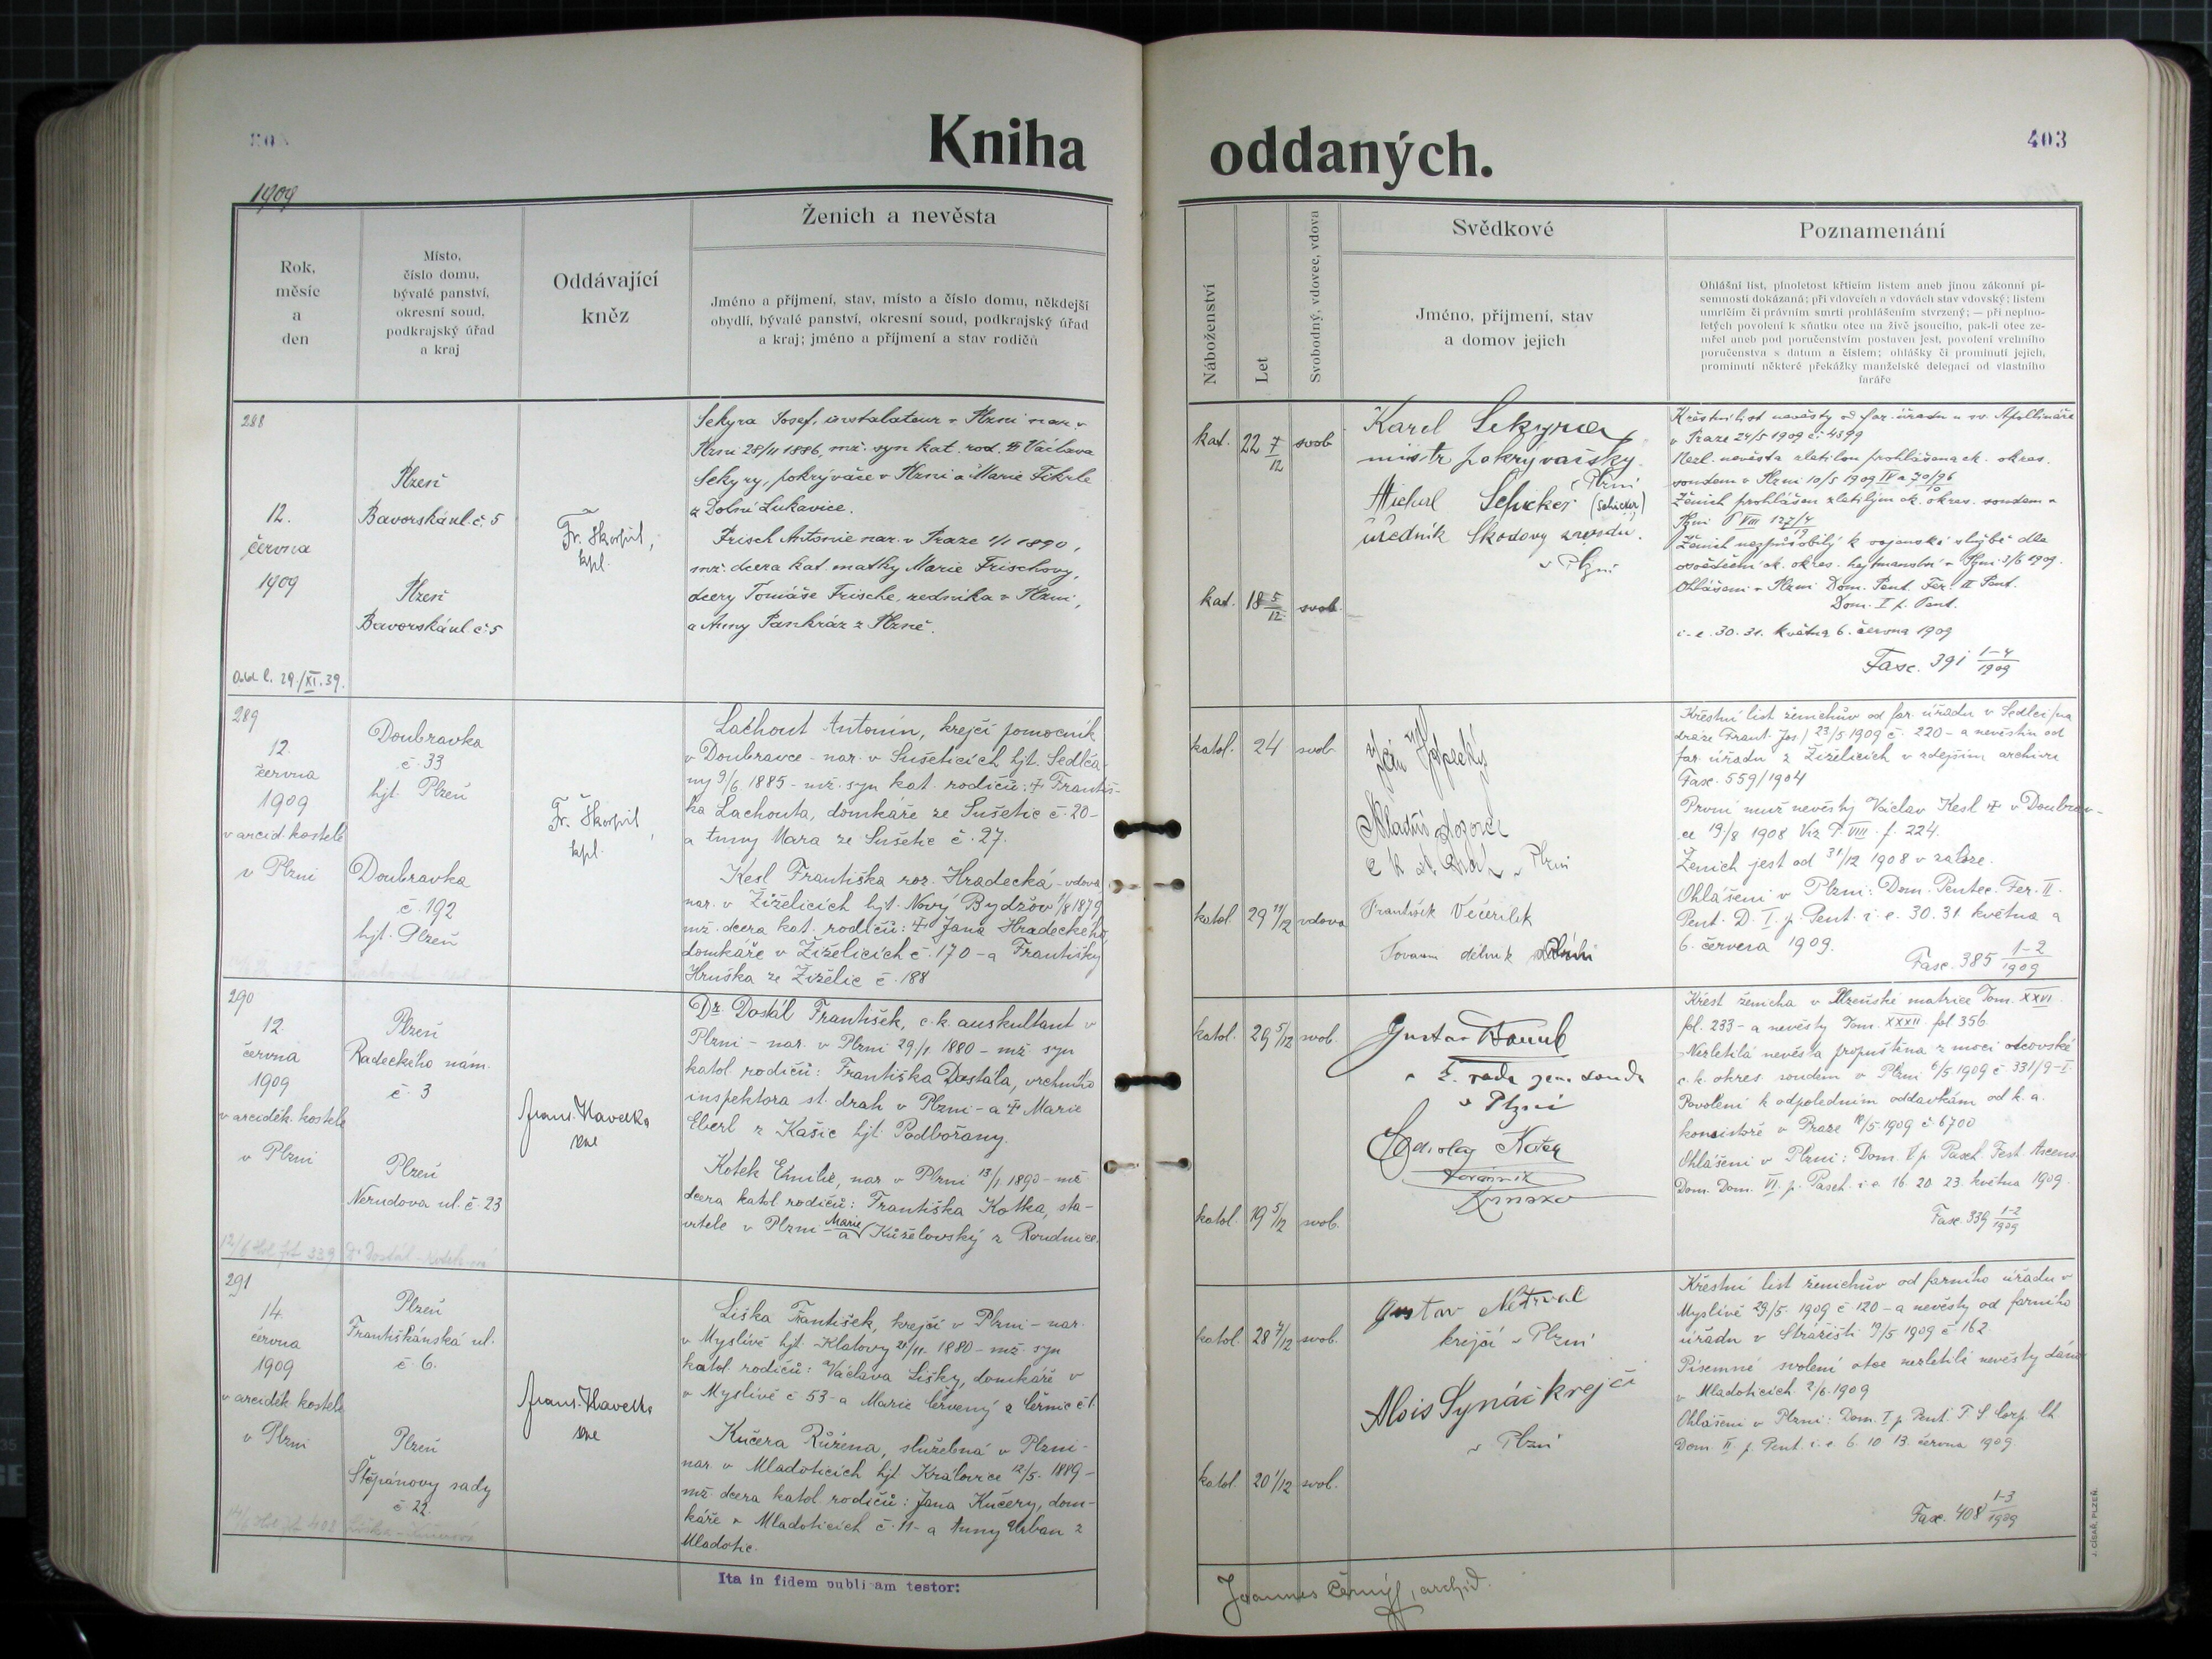 Kniha oddaných.
403
1909
Ženich a nevěsta
Rok,
měsíc
a
den
Místo,
číslo domu,
bývalé panství,
okresní soud,
podkrajský úřad
a kraj
Oddávající
kněz
Jméno a příjmení, stav, místo a číslo domu, někdejší
obydlí, bývalé panství, okresní soud, podkrajský úřad
a kraj; jméno a příjmení a stav rodičů
Náboženství
Let
Svobodný, vdovec, vdova
Svědkové
Jméno, příjmení, stav
a domov jejich
Poznamenání
Ohlášní list, plnoletost křticím listem aneb jinou zákonní pí-
semností dokázaná; při vdovcích a vdovách stav vdovský; listem
umrlčím či právním smrti prohlášením stvrzený; — při neplno-
letých povolení k sňatku otce na živě jsoucího, pak-li otec ze-
mřel aneb pod poručenstvím postaven jest, povolení vrchního
poručenstva s datum a číslem; ohlášky či prominutí jejich,
prominutí některé překážky manželské delegací od vlastního
faráře
288
12.
června
1909
Plzeň
Bavorská ul. č. 5
Plzeň
Bavorská ul. č. 5
Fr. Škorpil,
kpl.
Sekyra Josef, instalateur v Plzni nar. v
Plzni 28/11 1886, mž. syn kat. rod. Václava
Sekyry, pokrývače v Plzni a Marie Fikrle
z Dolní Lukavice.
Frisch Antonie nar. v Praze 1/1 1890,
mž. dcera kat. matky Marie Frischovy,
dcery Tomáše Frische, zedníka v Plzni,
a Anny Pankráz z Plzně.
kat. 22 7/12 svob
kat. 18 5/12 svob.
Karel Sekyra
mistr pokrývačský
v Plzni
Michal Schicker (Schicker)
úředník Škodovy závodu.
v Plzni
Křestní list nevěsty od far. úřadu u sv. Apollináře
v Praze 24/5 1909 č. 4399
Nezl. nevěsta zletilou prohlášena ck. okres.
soudem v Plzni 10/5 1909 IV a 70/96
Ženich prohlášen zletilým ck. okres. soudem v
Plzni P VIII 127/4
Ženich nezpůsobilý k vojenské službě dle
osvědčení ck. okres. hejtmanství v Plzni 3/6 1909.
Ohlášeni v Plzni Dom. Pent. Fer. II Pent.
Dom. I p. Pent.
i. e. 30. 31. května 6. června 1909
Fasc. 391 1-4/1909
289
12.
června
1909
v arcid. kostele
v Plzni
Doubravka
č. 33
hjt. Plzeň
Doubravka
č. 192
hjt. Plzeň
Fr. Škorpil,
kpl.
Lachout Antonín, krejčí pomocník
v Doubravce - nar. v Sušeticích hjt. Sedlča-
ny 9/6 1885 - mž. syn kat. rodičů: Františ-
ka Lachouta, domkáře ze Sušetic č. 20 -
a Anny Mara ze Sušetic č. 27.
Kesl Františka roz. Hradecká - vdova
nar. v Žiželicích hjt. Nový Bydžov 1/8 1879
mž. dcera kat. rodičů: Jana Hradeckého,
domkáře v Žiželicích č. 170 - a Františky
Hruška ze Žiželic č. 188
katol. 24 svob.
katol. 29 11/12 vdova
v Plzni
František Večeřílek
Tovarn dělník
Křestní list ženichův od far. úřadu v Sedlci /na
dráze Frant. Jos./ 23/5 1909 č. 220 - a nevěstin od
far. úřadu z Žiželicích v zdejším archivu
Fasc. 559/1904
První muž nevěsty Václav Kesl v Doubrav-
ce 19/8 1908 Viz T. VIII f. 224.
Ženich jest od 31/12 1908 v záloze.
Ohlášeni v Plzni: Dom. Pentec. Fer. II.
Pent. D. I. p. Pent. i. e. 30. 31. května a
6. června 1909.
Fasc. 385 1-2/1909
290
12.
června
1909
v arciděk. kostele
v Plzni
Plzeň
Radeckého nám.
č. 3
Plzeň
Nerudova ul. č. 23
Frant. Havelka
Dr. Dostál František, c. k. auskultant v
Plzni - nar. v Plzni 29/1 1880 - mž. syn
katol. rodičů: Františka Dostála, vrchního
inspektora st. drah v Plzni - a Marie
Eberl z Kašic hjt. Podbořany.
Kotek Emilie, nar. v Plzni 13/1 1890 - mž
dcera katol. rodičů: Františka Kotka, sta-
vitele v Plzni - a Marie Kůželovský z Roudnice.
katol. 29 5/12 svob.
katol. 19 5/12 svob.
v Plzni
Křest ženicha v Plzeňské matrice Tom. XXVI.
fol. 233 - a nevěsty Tom. XXXII. fol 356.
Nezletilá nevěsta propuštěna z moci otcovské
c. k. okres. soudem v Plzni 6/5 1909 č 331/9-I
Povolení k odpoledním oddavkám od k. a.
konsistoře v Praze 18/5 1909 č. 6700
Ohlášeni v Plzni: Dom. V p. Pasch. Fest. Ascens.
Dom. Dom. VI. p. Pasch. i. e. 16. 20. 23. května 1909.
Fasc. 339 1-2/1909
291
14.
června
1909
v arciděk. kostele
v Plzni
Plzeň
Františkánská ul.
č. 6.
Plzeň
Štěpánovy sady
č. 22
Frant. Havelka
Liška František, krejčí v Plzni - nar.
v Myslívě hjt. Klatovy 21/11. 1880 - mž. syn
katol. rodičů: Václava Lišky, domkáře v
v Myslívě č 53 - a Marie Červený z Černic č 1.
Kučera Růžena, služebná v Plzni -
nar. v Mladoticích hjt. Kralovice 12/5. 1889 -
mž. dcera katol. rodičů: Jana Kučery, dom-
káře v Mladoticích č. 11 - a Anny Urban z
Mladotic.
katol. 28 7/12 svob.
katol. 20 1/12 svob.
Gustav Netrval
krejčí v Plzni
Alois Synáč krejčí
v Plzni
Křestní list ženichův od farního úřadu v
Myslívě 29/5. 1909 č 120 - a nevěsty od farního
úřadu v Strážišti 19/5 1909 č 162
Písemné svolení otce nezletilé nevěsty dáno
v Mladoticích 2/6. 1909
Ohlášeni v Plzni: Dom. I p. Pent. F. S. Corp. Ch
Dom. II. p. Pent. i. e. 6. 10. 13. června 1909.
Fasc. 408 1-3/1909
Ita in fidem publicam testor:
Joannes Černý, archid.
J. CÍSAŘ, PLZEŇ.